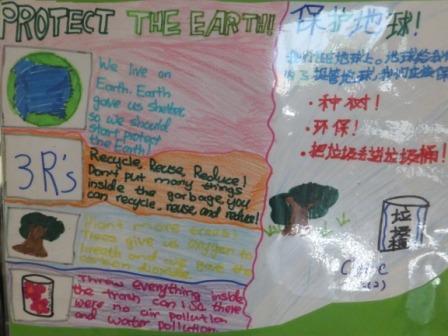 PROTECT THE EARTH!
We live on
Earth. Earth
gave us shelter,
so we should
start protect
the Earth!
3R's
Recycle, Reuse, Reduce!
Don't put many things
inside the garbage, you
can recycle, reuse and reduce!
Plant more trees!
Trees give us oxygen to
breath and we gave the
carbon dioxide.
Threw everything inside
the trash can! So there
were no air pollution
and water pollution.
保护地球!
我们住在地球上。地球给我们
为了报答地球,我们应该保
·种树!
·环保!
·把垃圾丢进垃圾桶!
垃圾桶